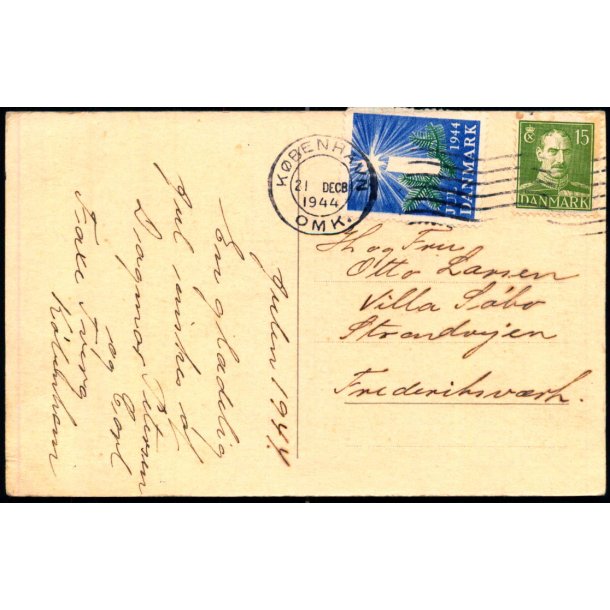 KØBENHAVN
21 DECB
1944
OMK.
1944
JULEN
DANMARK
15
DANMARK
Julen 1944
En glædelig
Jul ønskes af
Dagmar Petersen
og Carl
Faxe
København
H og Fru
Otto Larsen
Villa Søbo
Strandvejen
Frederiksværk.